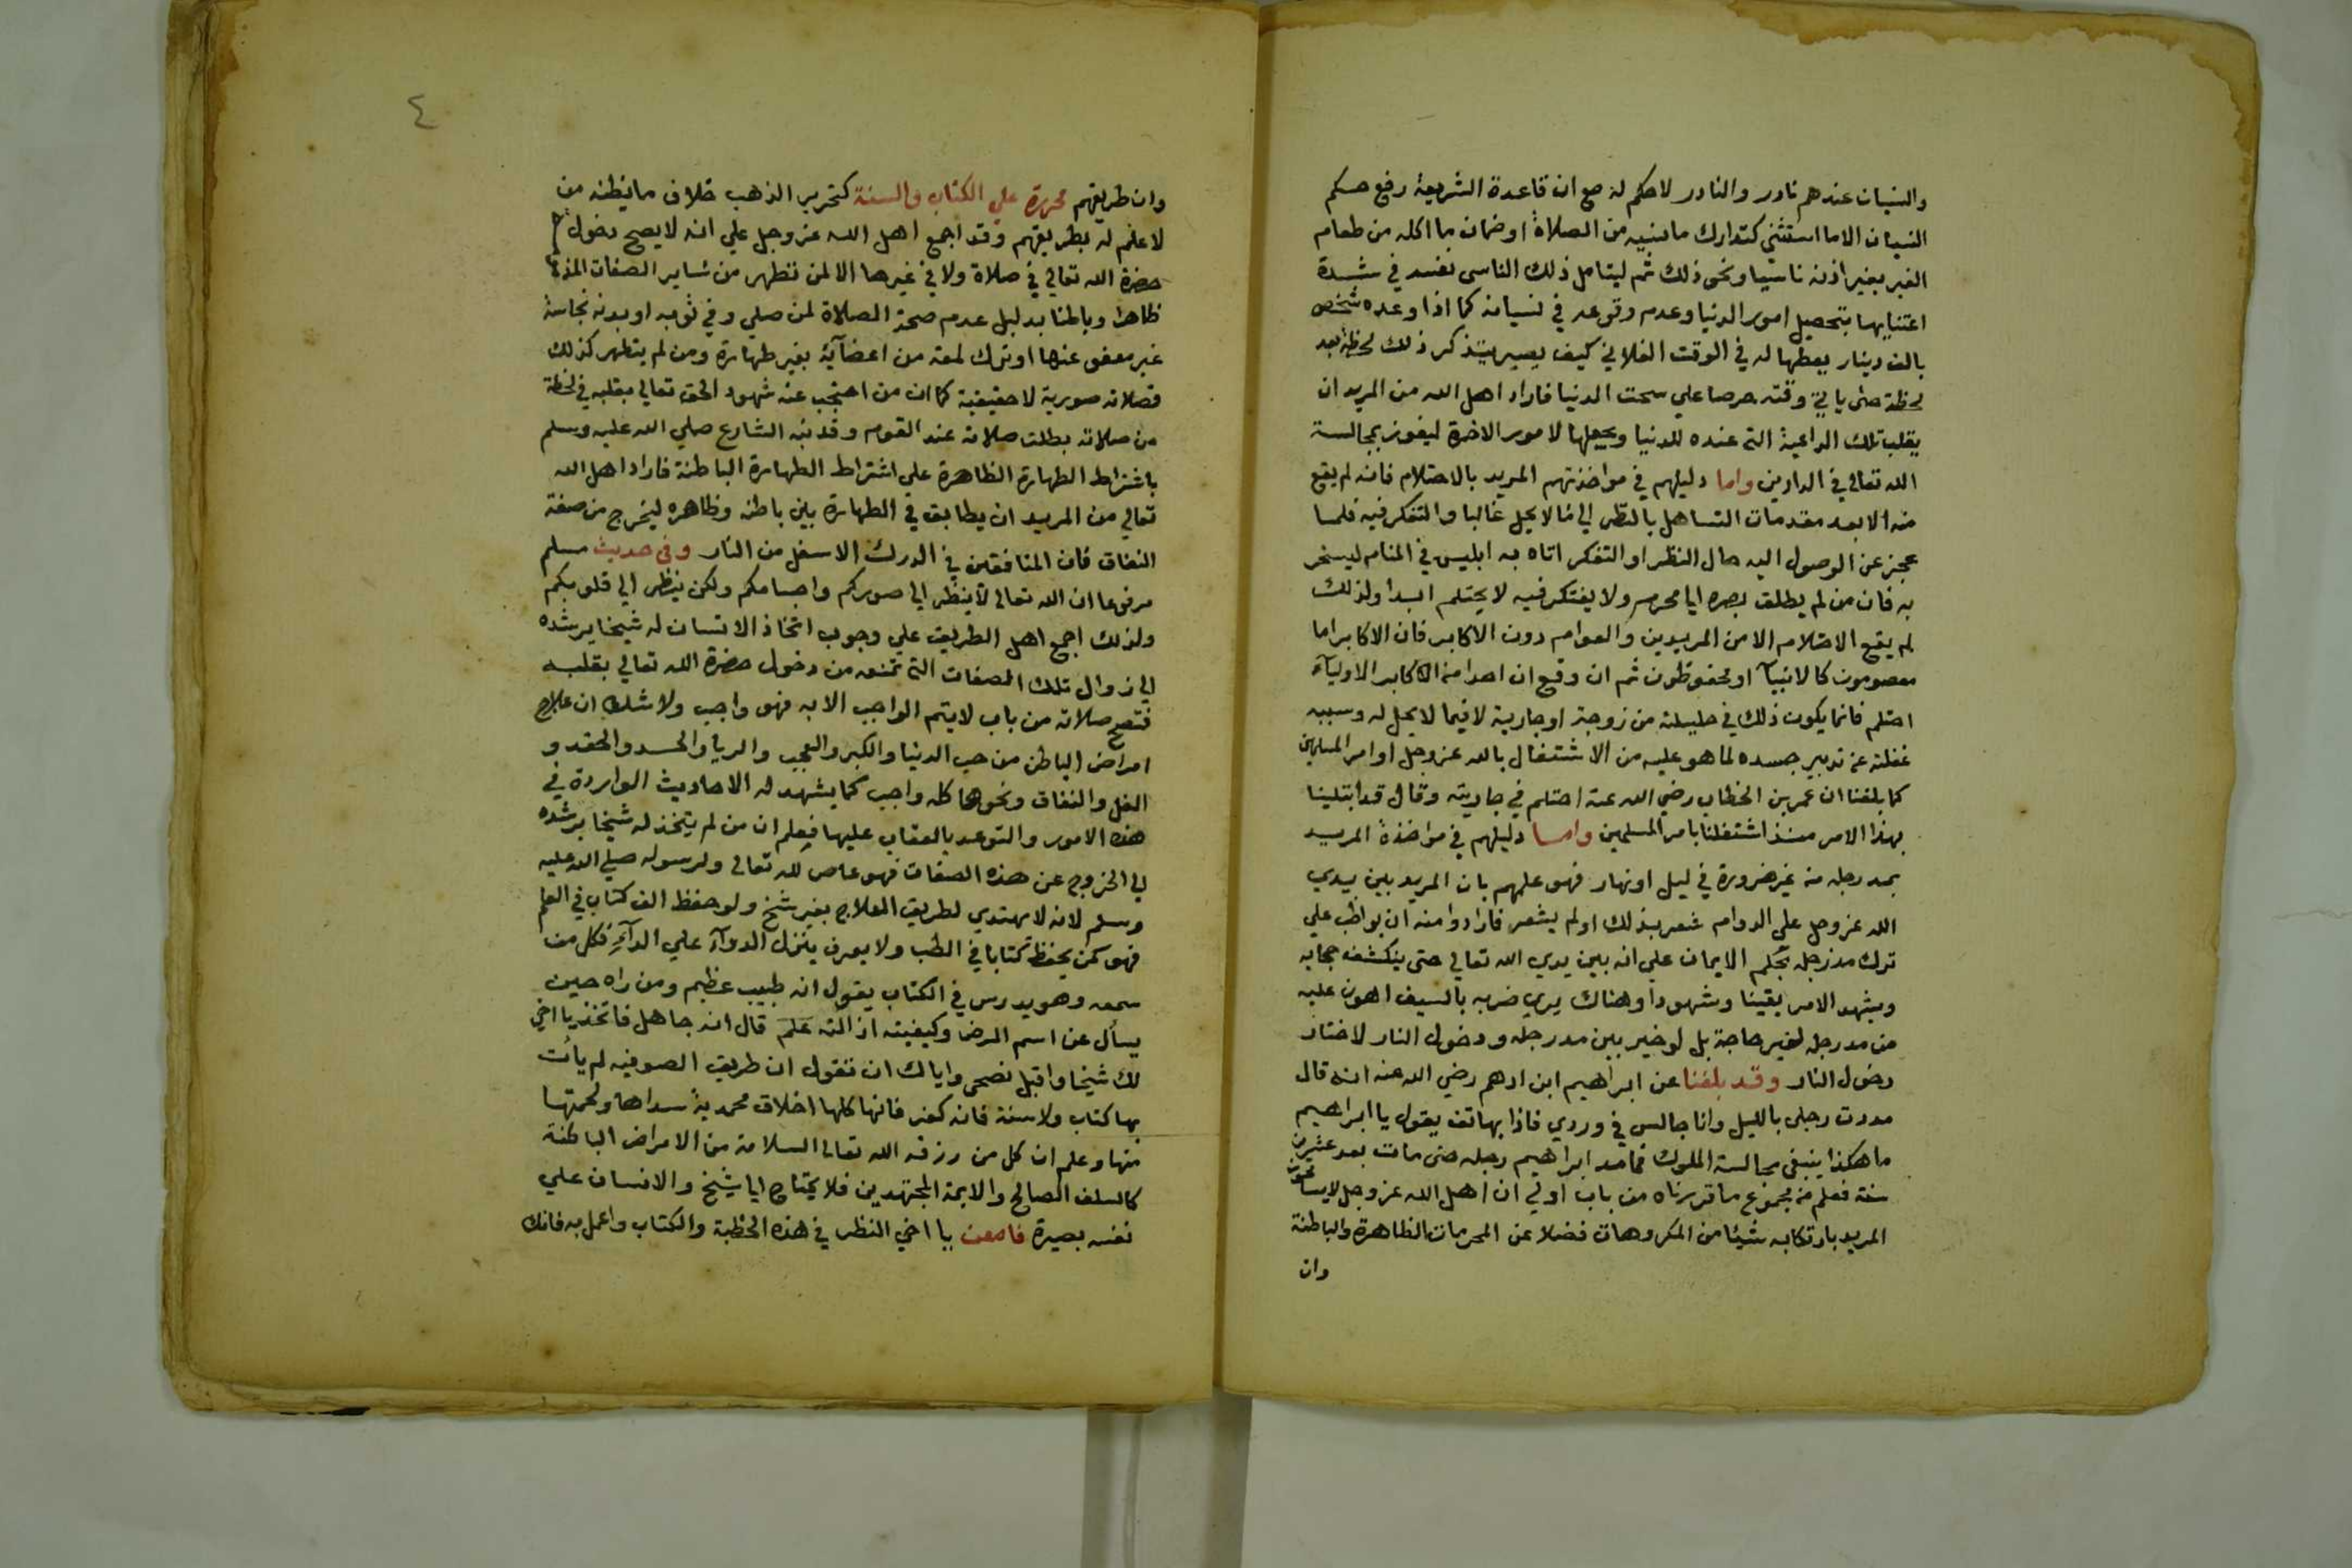 والنسيان عندهم نادر والنادر لا حكم له مع ان قاعدة الشريعة رفع حكم
النسيان الا ما استثنى كتدارك ما نسيه من الصلاة او ضمان ما اكله من طعام
الغير بغير اذنه ناسيا ونحو ذلك ثم ليتامل ذلك الناسي نفسه في شدة
اعتنايها بتحصيل امور الدنيا وعدم وقوعه في نسيانه كما اذا وعده شخص
بالف دينار يعطيها له في الوقت الفلاني كيف يصير يتذكر ذلك لحظة بعد
لحظة حتى ياتي وقته حرصا علي سحت الدنيا فاراد اهل الله من المريد ان
يقلب تلك الداعية التي عنده للدنيا ويجعلها لامور الاخرة ليفوز بمجالسة
الله تعالي في الدارين واما دليلهم في مواخذتهم المريد بالاحتلام فانه لم يقع
منه الا بعد مقدمات التساهل بالنظر الي ما لا يحل غالبا والتفكر فيه فلما
عجز عن الوصول اليه حال النظر او التفكر اتاه به ابليس في المنام ليسخر
به فان من لم يطلق بصره ايا محرم ولا يفتكر فيه لا يحتلم ابدا ولذلك
لم يقع الاحتلام الا من المريدين والعوام دون الاكابر فان الاكابر اما
معصومون كالانبيآ او محفوظون ثم ان وقع ان احدا من الاكابر الاوليآء
احتلم فانما يكون ذلك في حليلته من زوجة او جارية لا فيما لا يحل له وسببه
غفلته عن تدبير جسده لما هو عليه من الاشتغال بالله عز وجل او امر المسلمين
كما بلغنا ان عمر بن الخطاب رضي الله عنه احتلم في جاريته وقال قد ابتلينا
بهذا الامر منذ اشتغلنا بامر المسلمين واما دليلهم في مواخذة المريد
بمد رجله من غير ضرورة في ليل او نهار فهو علمهم بان المريد بين يدي
الله عز وجل علي الدوام شعر بذلك او لم يشعر فارادوا منه ان يواظب علي
ترك مد رجله بحكم الايمان علي انه بين يدي الله تعالي حتي ينكشف حجابه
ويشهد الامر يقينا وشهودا وهناك يري ضربه بالسيف اهون عليه
من مد رجله لغير حاجة بل لو خير بين مد رجله ودخول النار لاختار
دخول النار وقد بلغنا عن ابراهيم ابن ادهم رضي الله عنه انه قال
مددت رجلي بالليل وانا جالس في وردي فاذا بهاتف يقول يا ابراهيم
ما هكذا ينبغي مجالسة الملوك فما مد ابراهيم رجله حتى مات بعد عشرين
سنة فعلم من مجموع ما قررناه من باب اولي ان اهل الله عز وجل لا يسامحون
المريد بارتكابه شيئا من المكروهات فضلا عن المحرمات الظاهرة والباطنة
وان
٤
وان طريقهم محررة علي الكتاب والسنة كتحرير الذهب خلاف ما يظنه من
لا علم له بطريقهم وقد اجمع اهل الله عز وجل علي انه لا يصح دخول
حضرة الله تعالي في صلاة ولا في غيرها الا لمن تطهر من ساير الصفات المذمومة
ظاهرا وباطنا بدليل عدم صحة الصلاة لمن صلي وفي ثوبه او بدنه نجاسة
غير معفو عنها او ترك لمعة من اعضآية بغير طهارة ومن لم يتطهر كذلك
فصلاته صورية لا حقيقية كما ان من احتجب عنه شهود الحق تعالي بقلبه في لحظة
من صلاته بطلت صلاته عند القوم وقد نبه الشارع صلي الله عليه وسلم
باشتراط الطهارة الظاهرة علي اشتراط الطهارة الباطنة فاراد اهل الله
تعالي من المريد ان يطابق في الطهارة بين باطنه وظاهره ليخرج من صفة
النفاق فان المنافقين في الدرك الاسفل من النار وفي حديث مسلم
مرفوعا ان الله تعالي لا ينظر الي صوركم واجسامكم ولكن ينظر الي قلوبكم
ولذلك اجمع اهل الطريق علي وجوب اتخاذ الانسان له شيخا يرشده
الي زوال تلك الصفات التي تمنعه من دخول حضرة الله تعالي بقلبه
فتصح صلاته من باب لا يتم الواجب الا به فهو واجب ولا شك ان علاج
امراض الباطن من حب الدنيا والكبر والعجب والريا والحسد والحقد و
الغل والنفاق ونحوها كله واجب كما يشهد له الاحاديث الواردة في
هذه الامور والتوعد بالعقاب عليها فعلم ان من لم يتخذ له شيخا يرشده
الي الخروج عن هذه الصفات فهو عاص لله تعالى ولرسوله صلي الله عليه
وسلم لانه لا يهتدي لطريق العلاج بغير شيخ ولو حفظ الف كتاب في العلم
فهو كمن يحفظ كتابا في الطب ولا يعرف ينزل الدوآء علي الدآء فكل من
سمعه وهو يدرس في الكتاب يقول انه طبيب عظيم ومن راه حين
يسأل عن اسم المرض وكيفيته ازالته علم قال انه جاهل فاتخذ يا اخي
لك شيخا واقبل نصحي واياك ان تقول ان طريق الصوفيه لم يأت
بها كتاب ولا سنة فانه كفر فانها كلها اخلاق محمدية سداها ولحمتها
منها وعلم ان كل من رزقه الله تعالي السلامة من الامراض الباطنة
كالسلف الصالح والايمة المجتهدين فلا يحتاج ايا شيخ والانسان علي
نفسه بصيرة فامعن يا اخي النظر في هذه الخطبة والكتاب واعمل به فانك